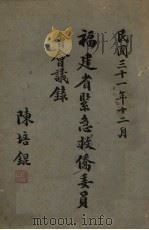 民國三十一年十二月
福建省緊急救僑委員
會議錄
陳培錕